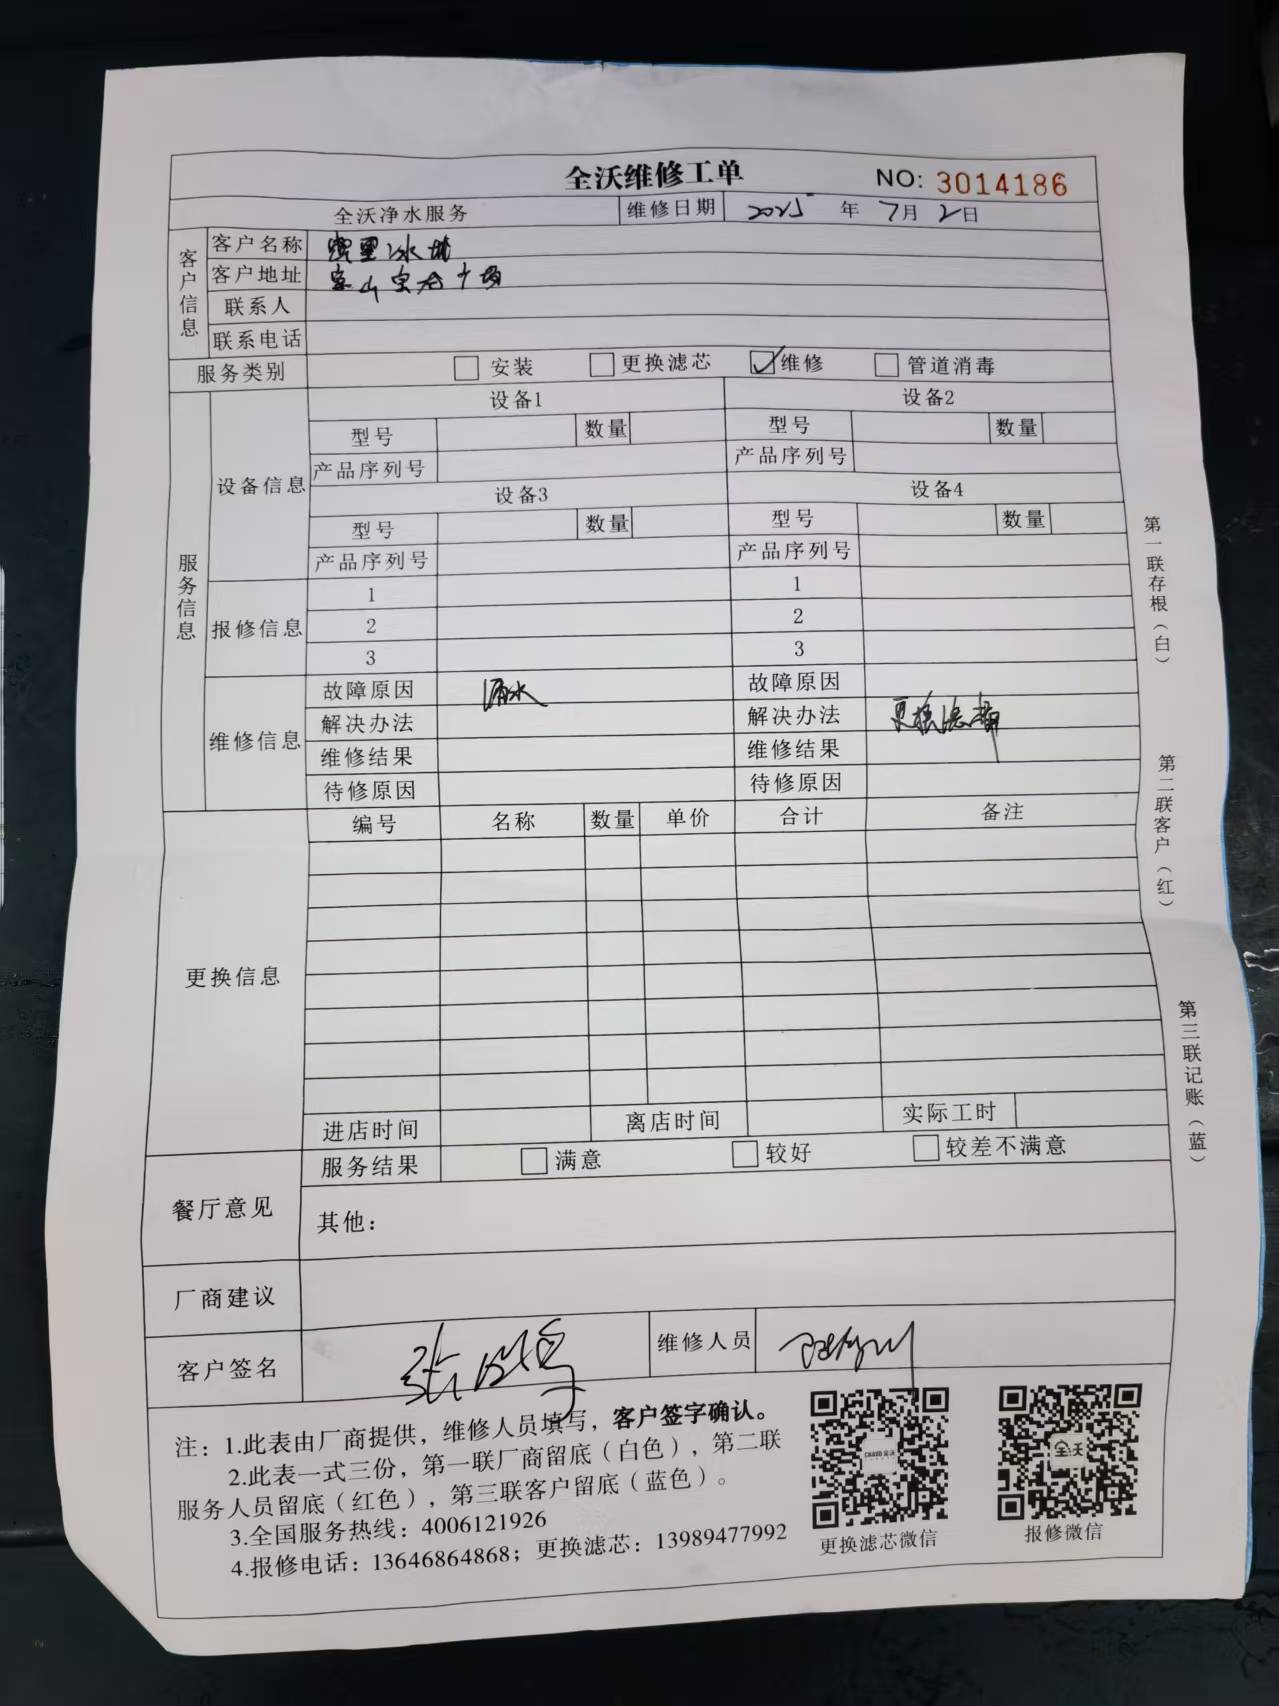 全沃维修工单 NO: 3014186
全沃净水服务 维修日期 2025 年 7 月 2 日
客户信息
客户名称
客户地址 宝山宝龙广场
联系人
联系电话
服务类别 安装 更换滤芯 维修 管道消毒
服务信息
设备信息
设备1 设备2
型号 数量 型号 数量
产品序列号 产品序列号
设备3 设备4
型号 数量 型号 数量
产品序列号 产品序列号
报修信息
1 1
2 2
3 3
维修信息
故障原因 漏水 故障原因
解决办法 解决办法 更换
维修结果 维修结果
待修原因 待修原因
更换信息
编号 名称 数量 单价 合计 备注
进店时间 离店时间 实际工时
餐厅意见
服务结果 满意 较好 较差不满意
其他：
厂商建议
客户签名 维修人员
注：1.此表由厂商提供，维修人员填写，客户签字确认。
2.此表一式三份，第一联厂商留底（白色），第二联
服务人员留底（红色），第三联客户留底（蓝色）。
3.全国服务热线：4006121926
4.报修电话：13646864868；更换滤芯：13989477992
全沃
更换滤芯微信 报修微信
第一联存根（白）
第二联客户（红）
第三联记账（蓝）